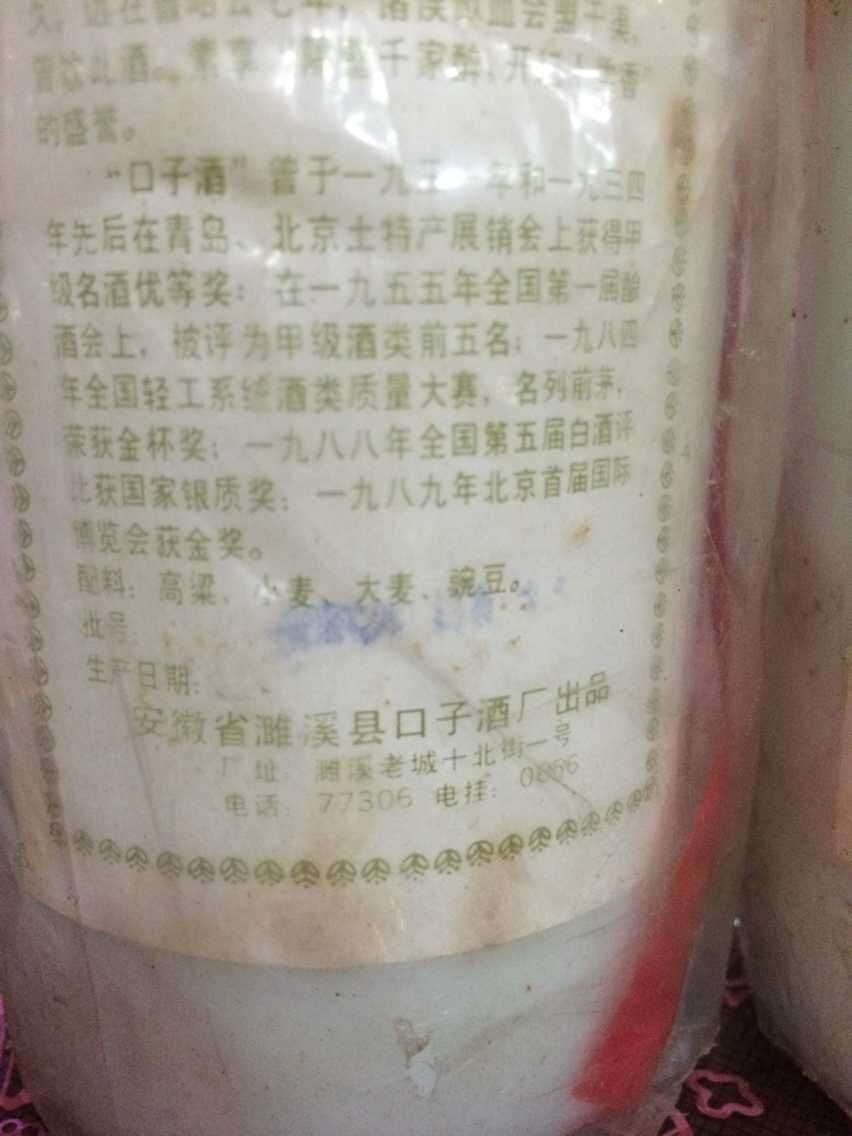 会盟于
曾饮此酒。素享 千家醉,开 香"
的盛誉。
"口子酒"曾于一九三 年和一九三四
年先后在青岛、北京土特产展销会上获得甲
级名酒优等奖;在一九五五年全国第一届酿
酒会上,被评为甲级酒类前五名;一九八四
年全国轻工系统酒类质量大赛,名列前茅,
荣获金杯奖;一九八八年全国第五届白酒评
比获国家银质奖;一九八九年北京首届国际
博览会获金奖。
配料:高粱、小麦、大麦、豌豆。
批号:
生产日期:
安徽省濉溪县口子酒厂出品
厂址:濉溪老城十北街一号
电话:77306 电挂:0866